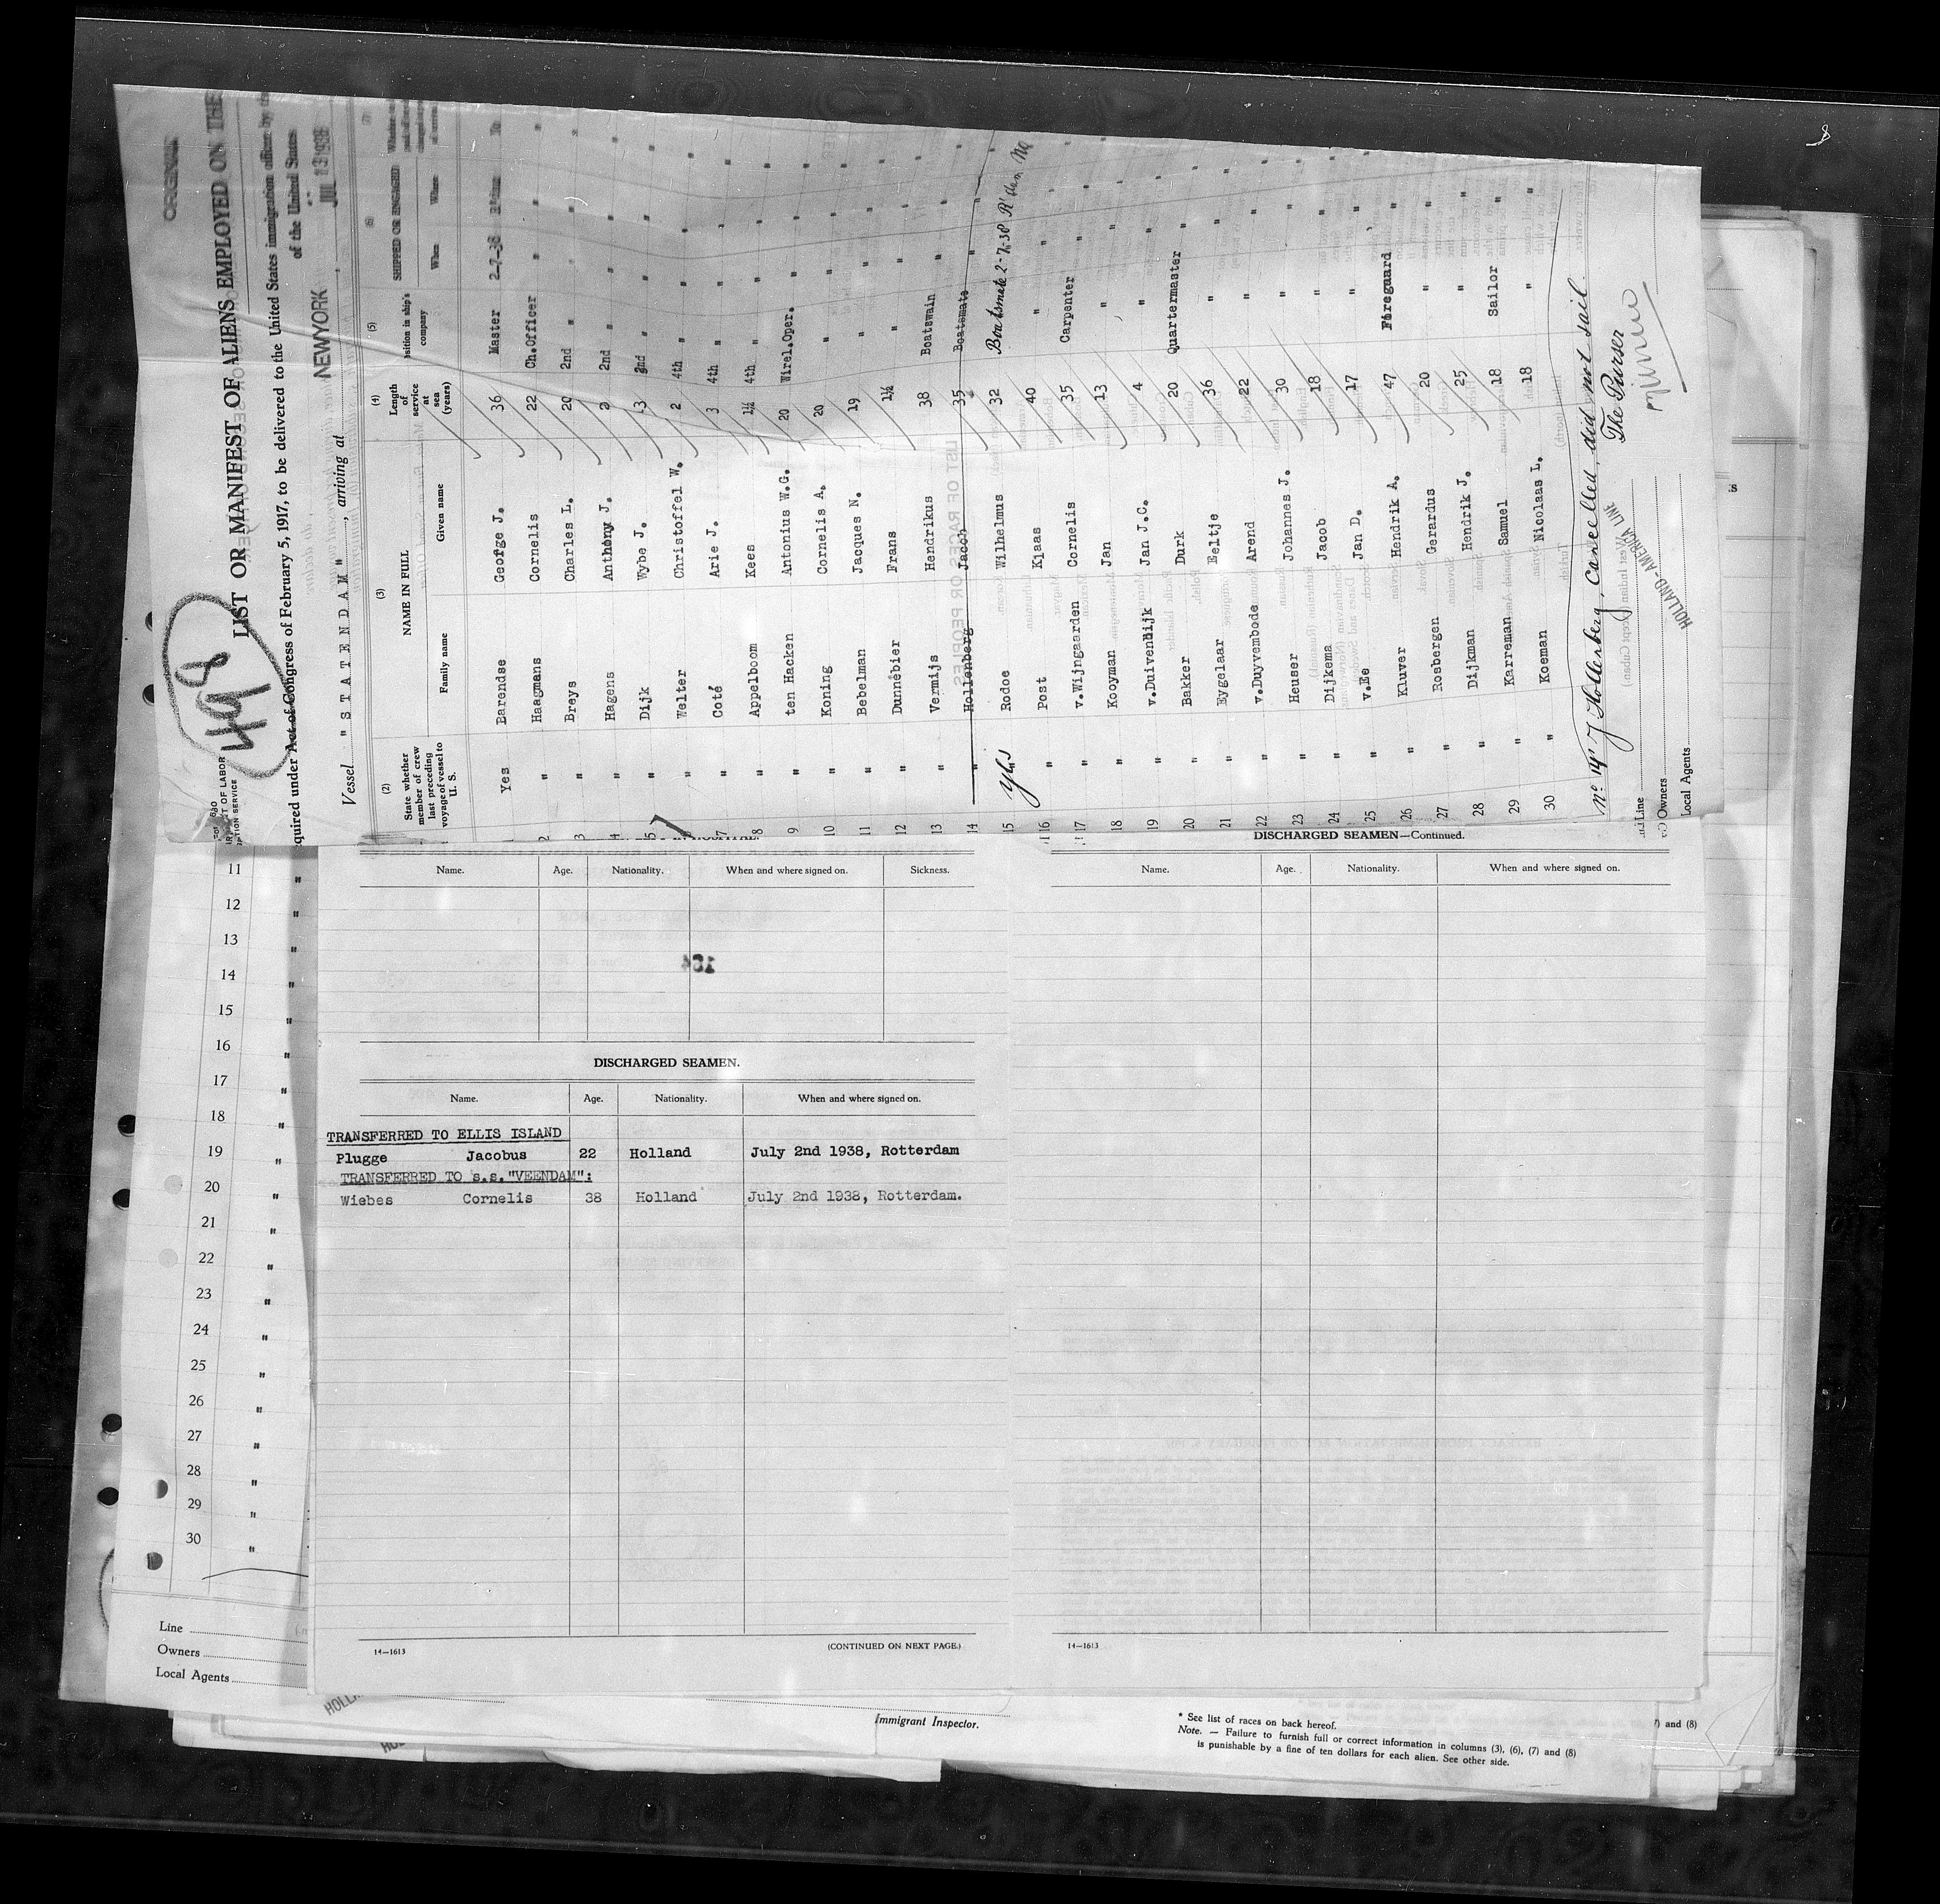 ORIGINAL
498
LIST OR MANIFEST OF ALIENS EMPLOYED ON THE
quired under Act of Congress of February 5, 1917, to be delivered to the United States immigration officer by the
of the United States
Vessel "STATENDAM", arriving at NEWYORK, JUL 13 1938
(2) (3) (4) (5) (6) (7)
State whether member of crew last preceding voyage of vessel to U. S. NAME IN FULL Family name Given name Length of service at sea (years) osition in ship's company SHIPPED OR ENGAGED When Where
Yes Barendse George J. 36 Master 2-7-38
2 " Haagmans Cornelis 22 Ch.Officer " "
3 " Breys Charles L. 20 2nd " " "
4 " Hagens Anthony J. 2 2nd " " "
5 " Dijk Wybe J. 3 3nd " " "
6 " Welter Christoffel W. 2 4th " " "
7 " Coté Arie J. 3 4th " " "
8 " Appelboom Kees 1½ 4th " " "
9 " ten Hacken Antonius W.G. 20 Wirel.Oper. " "
10 " Koning Cornelis A. 20 " " "
11 " Bebelman Jacques N. 19 " " "
12 " Dunnebier Frans 1½ " " "
13 " Vermijs Hendrikus 38 Boatswain " "
14 " Hollenberg Jacob 35 Boatsmate " "
15 yes Rodoe Wilhelmus 32 Boatsmate 2-7-38 R'dam No
16 " Post Klaas 40 " " "
17 " v.Wijngaarden Cornelis 35 Carpenter " "
18 " Kooyman Jan 13 " " "
19 " v.Duivenbijk Jan J.C. 4 " " "
20 " Bakker Durk 20 Quartermaster " "
21 " Eygelaar Eeltje 36 " " "
22 " v.Duyvembode Arend 22 " " "
23 " Heuser Johannes J. 30 " " "
24 " Dijkema Jacob 18 " " "
25 " v.Ee Jan D. 17 " " "
26 " Kluver Hendrik A. 47 Fireguard " "
27 " Rosbergen Gerardus 20 " " "
28 " Dijkman Hendrik J. 25 " " "
29 " Karreman Samuel 18 Sailor " "
30 " Koeman Nicolaas L. 18 " " "
No 14, J Hollenberg, Cancelled, did not sail.
The Purser
Line
Owners
Local Agents
HOLLAND-AMERICA LINE
DISCHARGED SEAMEN—Continued.
Name. Age. Nationality. When and where signed on. Sickness.
Name. Age. Nationality. When and where signed on.
184
DISCHARGED SEAMEN.
Name. Age. Nationality. When and where signed on.
TRANSFERRED TO ELLIS ISLAND
Plugge Jacobus 22 Holland July 2nd 1938, Rotterdam
TRANSFERRED TO s.s."VEENDAM":
Wiebes Cornelis 38 Holland July 2nd 1938, Rotterdam.
14—1613 (CONTINUED ON NEXT PAGE.)
14—1613
11 "
12 "
13 "
14 "
15 "
16 "
17 "
18 "
19 "
20 "
21 "
22 "
23 "
24 "
25 "
26 "
27 "
28 "
29 "
30 "
Line
Owners
Local Agents
Immigrant Inspector.
* See list of races on back hereof.
Note. — Failure to furnish full or correct information in columns (3), (6), (7) and (8)
is punishable by a fine of ten dollars for each alien. See other side.
) and (8)